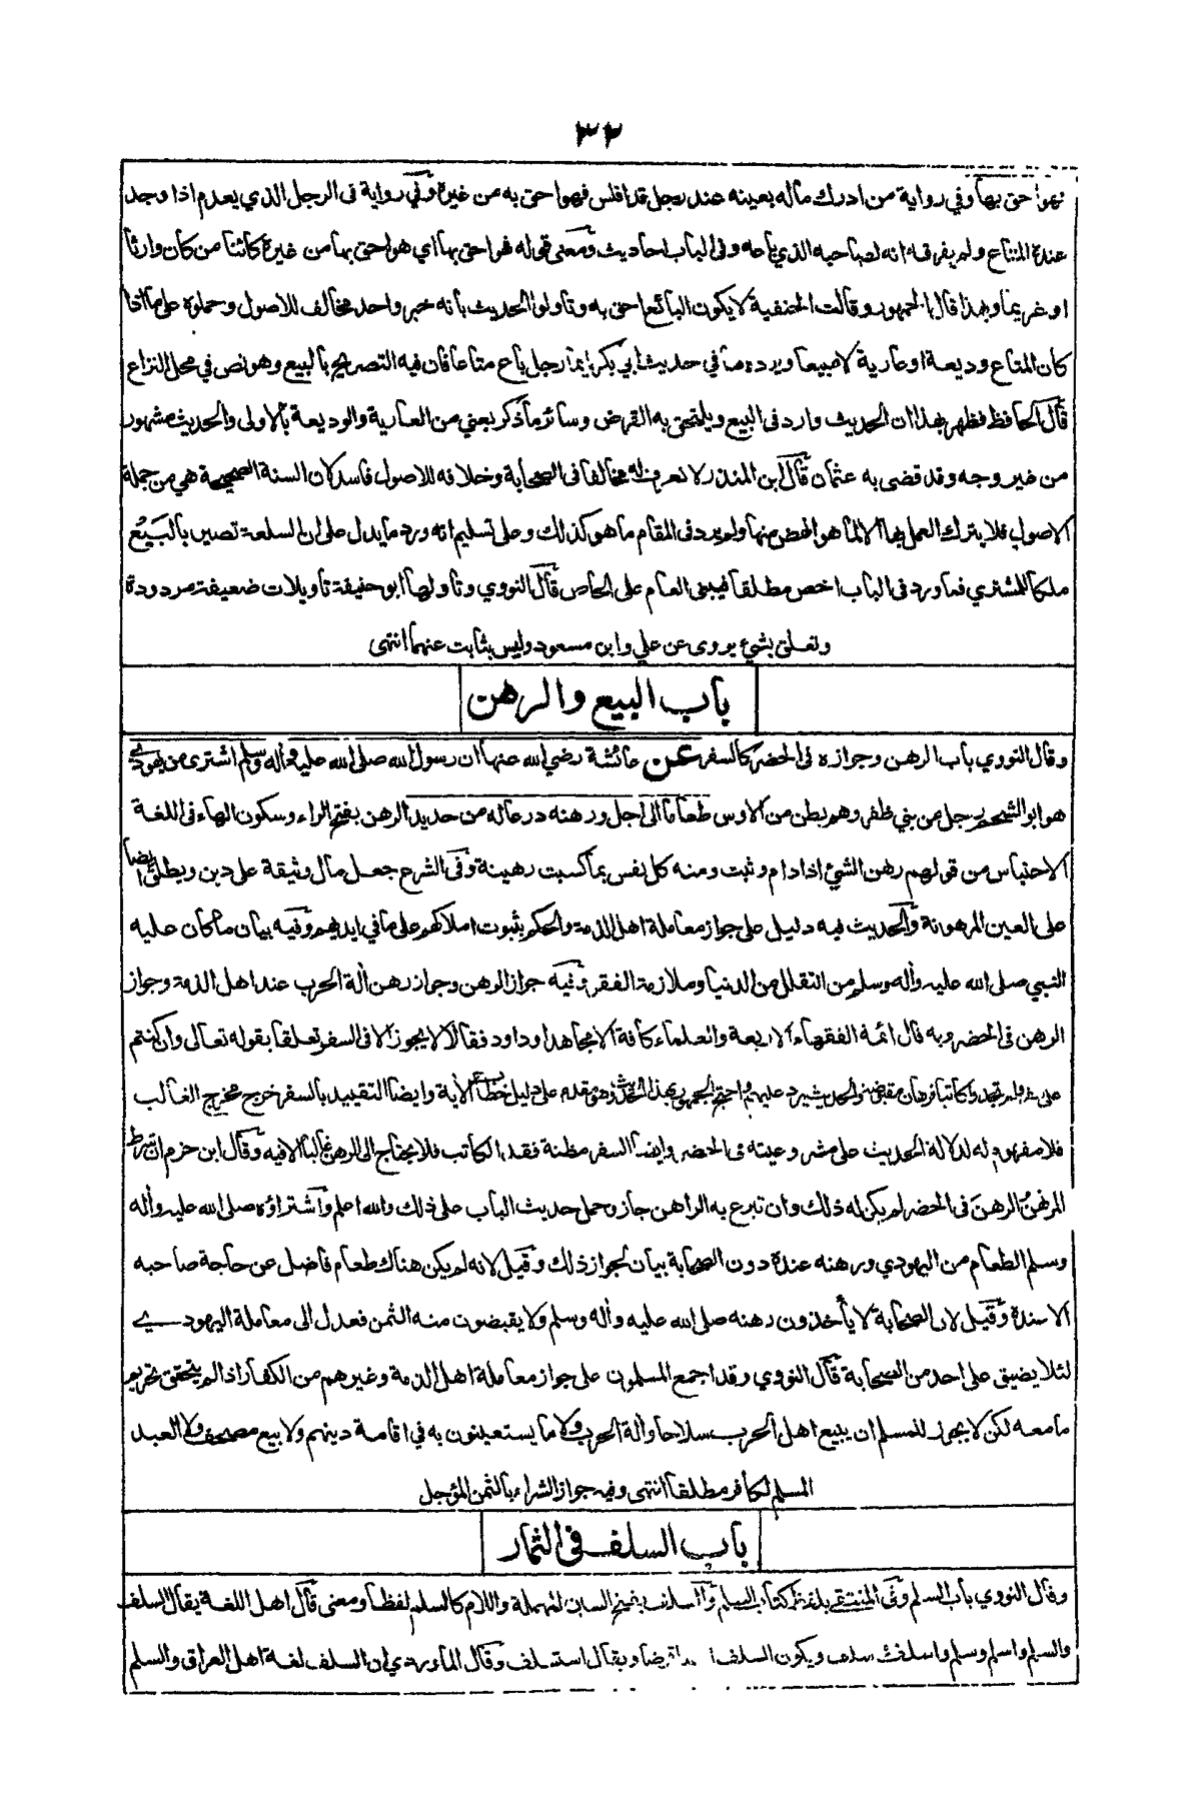 ٣٢
فهو احق بها وفي رواية من ادرك ماله بعينه عند رجل قد افلس فهو احق به من غيره وفي رواية فى الرجل الذي يعدم اذا وجد
عنده المتاع ولم يفرقه انه لصاحبه الذي باعه وفى الباب احاديث ومعنى قوله فهو احق بها اي هو احق بها من غيره كائنا من كان وارثا
او غريما وبهذا قال الجمهور وقالت الحنفية لا يكون البائع احق به وتأولوا الحديث بأنه خبر واحد مخالف للاصول وحملوه على ما اذا
كان المتاع وديعة او عارية لا مبيعا ويرده ما في حديث ابي بكر ايما رجل باع متاعا فان فيه التصريح بالبيع وهو نص في محل النزاع
قال الحافظ فظهر بهذا ان الحديث وارد فى البيع ويلتحق به القرض وسائر ما ذكر يعني من العارية والوديعة بالاولى والحديث مشهور
من غير وجه وقد قضى به عثمان قال ابن المنذر لا نعرف له مخالفا فى الصحابة وخلافه للاصول فاسد لان السنة الصحيحة هي من جملة
الاصول فلا يترك العمل بها الا لما هو انهض منها ولم يرد فى المقام ما هو كذلك وعلى تسليم انه ورد ما يدل على ان السلعة تصير بالبيع
ملكا للمشتري فما ورد فى الباب اخص مطلقا فيبنى العام على الخاص قال النووي وتأولها ابو حنيفة تأويلات ضعيفة مردودة
وتعلق بشيء يروى عن علي وابن مسعود وليس بثابت عنهما انتهى
باب البيع والرهن
وقال النووي باب الرهن وجوازه فى الحضر كالسفر عن عائشة رضي الله عنها ان رسول الله صلى الله عليه وأله وسلم اشترى من يهودي
هو ابو الشحم رجل من بني ظفر وهم بطن من الاوس طعاما الى اجل ورهنه درعا له من حديد الرهن بفتح الراء وسكون الهاء فى اللغة
الاحتباس من قولهم رهن الشئ اذا دام وثبت ومنه كل نفس بما كسبت رهينة وفى الشرع جعل مال وثيقة على دين ويطلق ايضا
على العين المرهونة والحديث فيه دليل على جواز معاملة اهل الذمة والحكم بثبوت املاكهم على ما في ايديهم وفيه بيان ما كان عليه
النبي صلى الله عليه وأله وسلم من التقلل من الدنيا وملازمة الفقر وفيه جواز الرهن وجواز رهن ألة الحرب عند اهل الذمة وجواز
الرهن فى الحضر وبه قال ائمة الفقهاء الاربعة والعلماء كافة الا مجاهدا وداود فقالا لا يجوز الا فى السفر تعلقا بقوله تعالى وان كنتم
على سفر ولم تجدوا كاتبا فرهان مقبوضة والحديث يرد عليهم واحتج الجمهور بهذا الحديث وهو مقدم على دليل خطاب الأية وايضا التقييد بالسفر خرج مخرج الغالب
فلا مفهوم له لدلالة الحديث على مشروعيته فى الحضر وايضا السفر مظنة فقد الكاتب فلا يحتاج الى الرهن غالبا الا فيه وقال ابن حزم ان شرط
المرتهن الرهن فى الحضر لم يكن له ذلك وان تبرع به الراهن جاز وحمل حديث الباب على ذلك والله اعلم واشتراؤه صلى الله عليه وأله
وسلم الطعام من اليهودي ورهنه عنده دون الصحابة بيان لجواز ذلك وقيل لانه لم يكن هناك طعام فاضل عن حاجة صاحبه
الا عنده وقيل لان الصحابة لا يأخذون رهنه صلى الله عليه وأله وسلم ولا يقبضون منه الثمن فعدل الى معاملة اليهودي
لئلا يضيق على احد من الصحابة قال النووي وقد اجمع المسلمون على جواز معاملة اهل الذمة وغيرهم من الكفار اذا لم يتحقق تحريم
ما معه لكن لا يجوز للمسلم ان يبيع اهل الحرب سلاحا وألة الحرب ولا ما يستعينون به في اقامة دينهم ولا بيع مصحف ولا العبد
المسلم لكافر مطلقا انتهى وفيه جواز الشراء بالثمن المؤجل
باب السلف فى الثمار
وقال النووي باب السلم وفى المنتقى بلفظ كتاب السلم والسلف بفتح السين المهملة واللام كالسلم لفظا ومعنى قال اهل اللغة يقال السلف
والسلم واسلم وسلم واسلف وسلف ويكون السلف ايضا قرضا ويقال استسلف وقال الماوردي ان السلف لغة اهل العراق والسلم